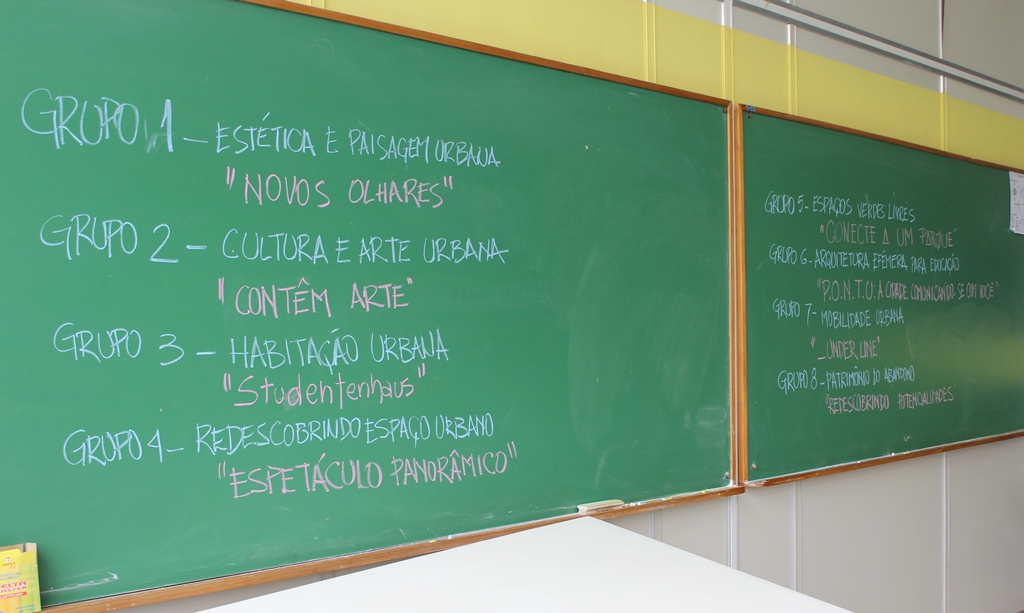 GRUPO 1 - ESTÉTICA E PAISAGEM URBANA
"NOVOS OLHARES"
GRUPO 2 - CULTURA E ARTE URBANA
"CONTÊM ARTE"
GRUPO 3 - HABITAÇÃO URBANA
"Studentenhaus"
GRUPO 4 - REDESCOBRINDO ESPAÇO URBANO
"ESPETÁCULO PANORÂMICO"
GRUPO 5 - ESPAÇOS VERDES LIVRES
"CONECTE A UM PARQUE"
GRUPO 6 - ARQUITETURA EFÊMERA PARA EDUCAÇÃO
"P.O.N.T.O: A CIDADE COMUNICANDO-SE COM VOCÊ"
GRUPO 7 - MOBILIDADE URBANA
"_UNDER LINE"
GRUPO 8 - PATRIMÔNIO DO ABANDONO
"REDESCOBRINDO POTENCIALIDADES"